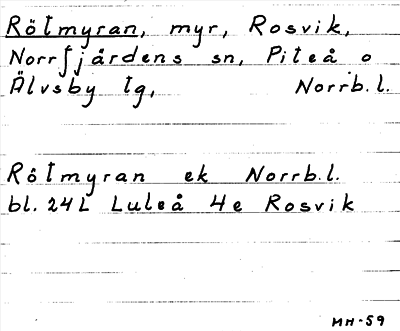 Rötmyran, myr, Rosvik,
Norrfjärdens sn, Piteå o
Älvsby tg, Norrb.l.
Rötmyran ek Norrb.l.
bl. 24L Luleå 4e Rosvik
MH-59